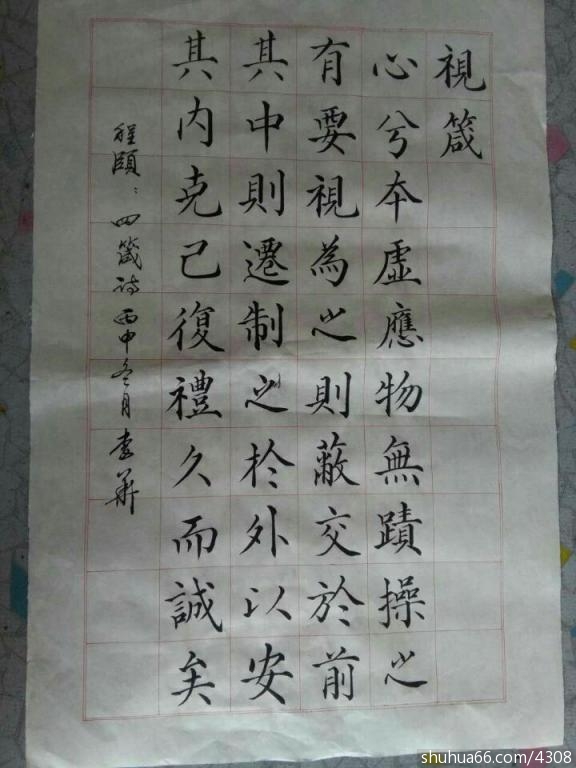 視箴
心兮本虛應物無蹟操之
有要視為之則蔽交於前
其中則遷制之於外以安
其内克己復禮久而誠矣
程頤：四箴詩丙申冬月李華
shuhua66.com/4308